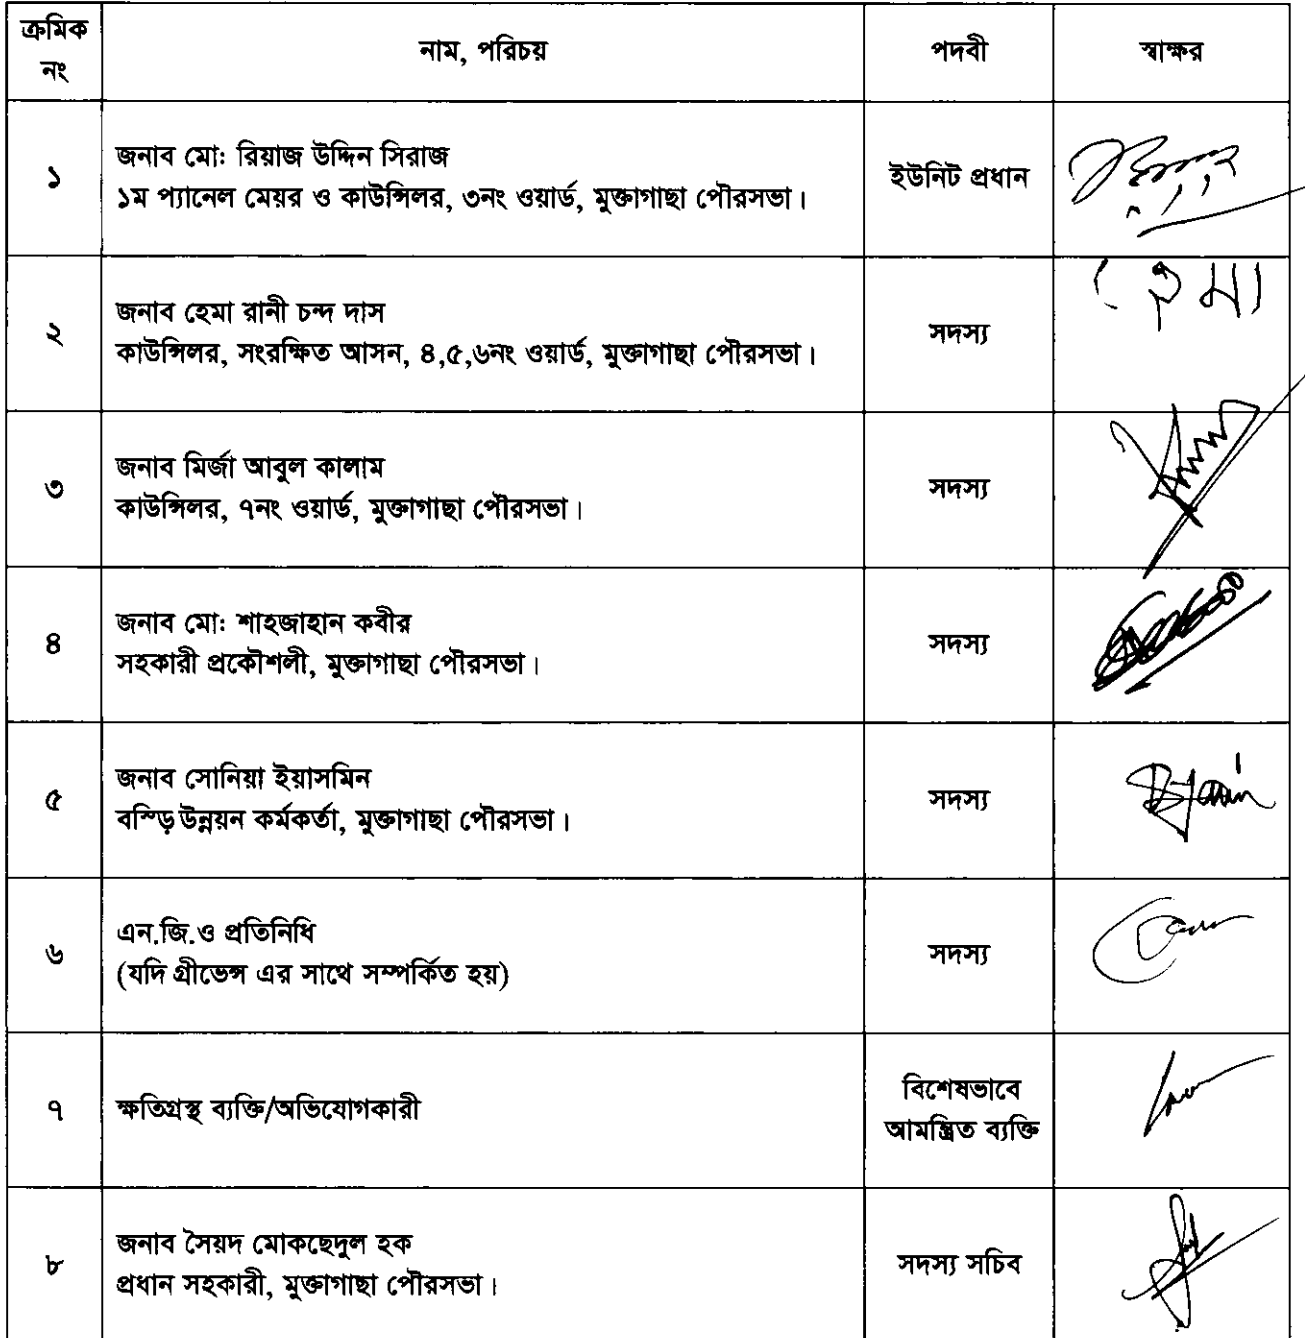 ক্রমিক নং
নাম, পরিচয়
পদবী
স্বাক্ষর
১
জনাব মো: রিয়াজ উদ্দিন সিরাজ
১ম প্যানেল মেয়র ও কাউন্সিলর, ৩নং ওয়ার্ড, মুক্তাগাছা পৌরসভা।
ইউনিট প্রধান
২
জনাব হেমা রানী চন্দ দাস
কাউন্সিলর, সংরক্ষিত আসন, ৪,৫,৬নং ওয়ার্ড, মুক্তাগাছা পৌরসভা।
সদস্য
হেমা
৩
জনাব মির্জা আবুল কালাম
কাউন্সিলর, ৭নং ওয়ার্ড, মুক্তাগাছা পৌরসভা।
সদস্য
৪
জনাব মো: শাহজাহান কবীর
সহকারী প্রকৌশলী, মুক্তাগাছা পৌরসভা।
সদস্য
৫
জনাব সোনিয়া ইয়াসমিন
বস্ড়ি উন্নয়ন কর্মকর্তা, মুক্তাগাছা পৌরসভা।
সদস্য
৬
এন.জি.ও প্রতিনিধি
(যদি গ্রীভেন্স এর সাথে সম্পর্কিত হয়)
সদস্য
৭
ক্ষতিগ্রস্থ ব্যক্তি/অভিযোগকারী
বিশেষভাবে
আমন্ত্রিত ব্যক্তি
৮
জনাব সৈয়দ মোকছেদুল হক
প্রধান সহকারী, মুক্তাগাছা পৌরসভা।
সদস্য সচিব